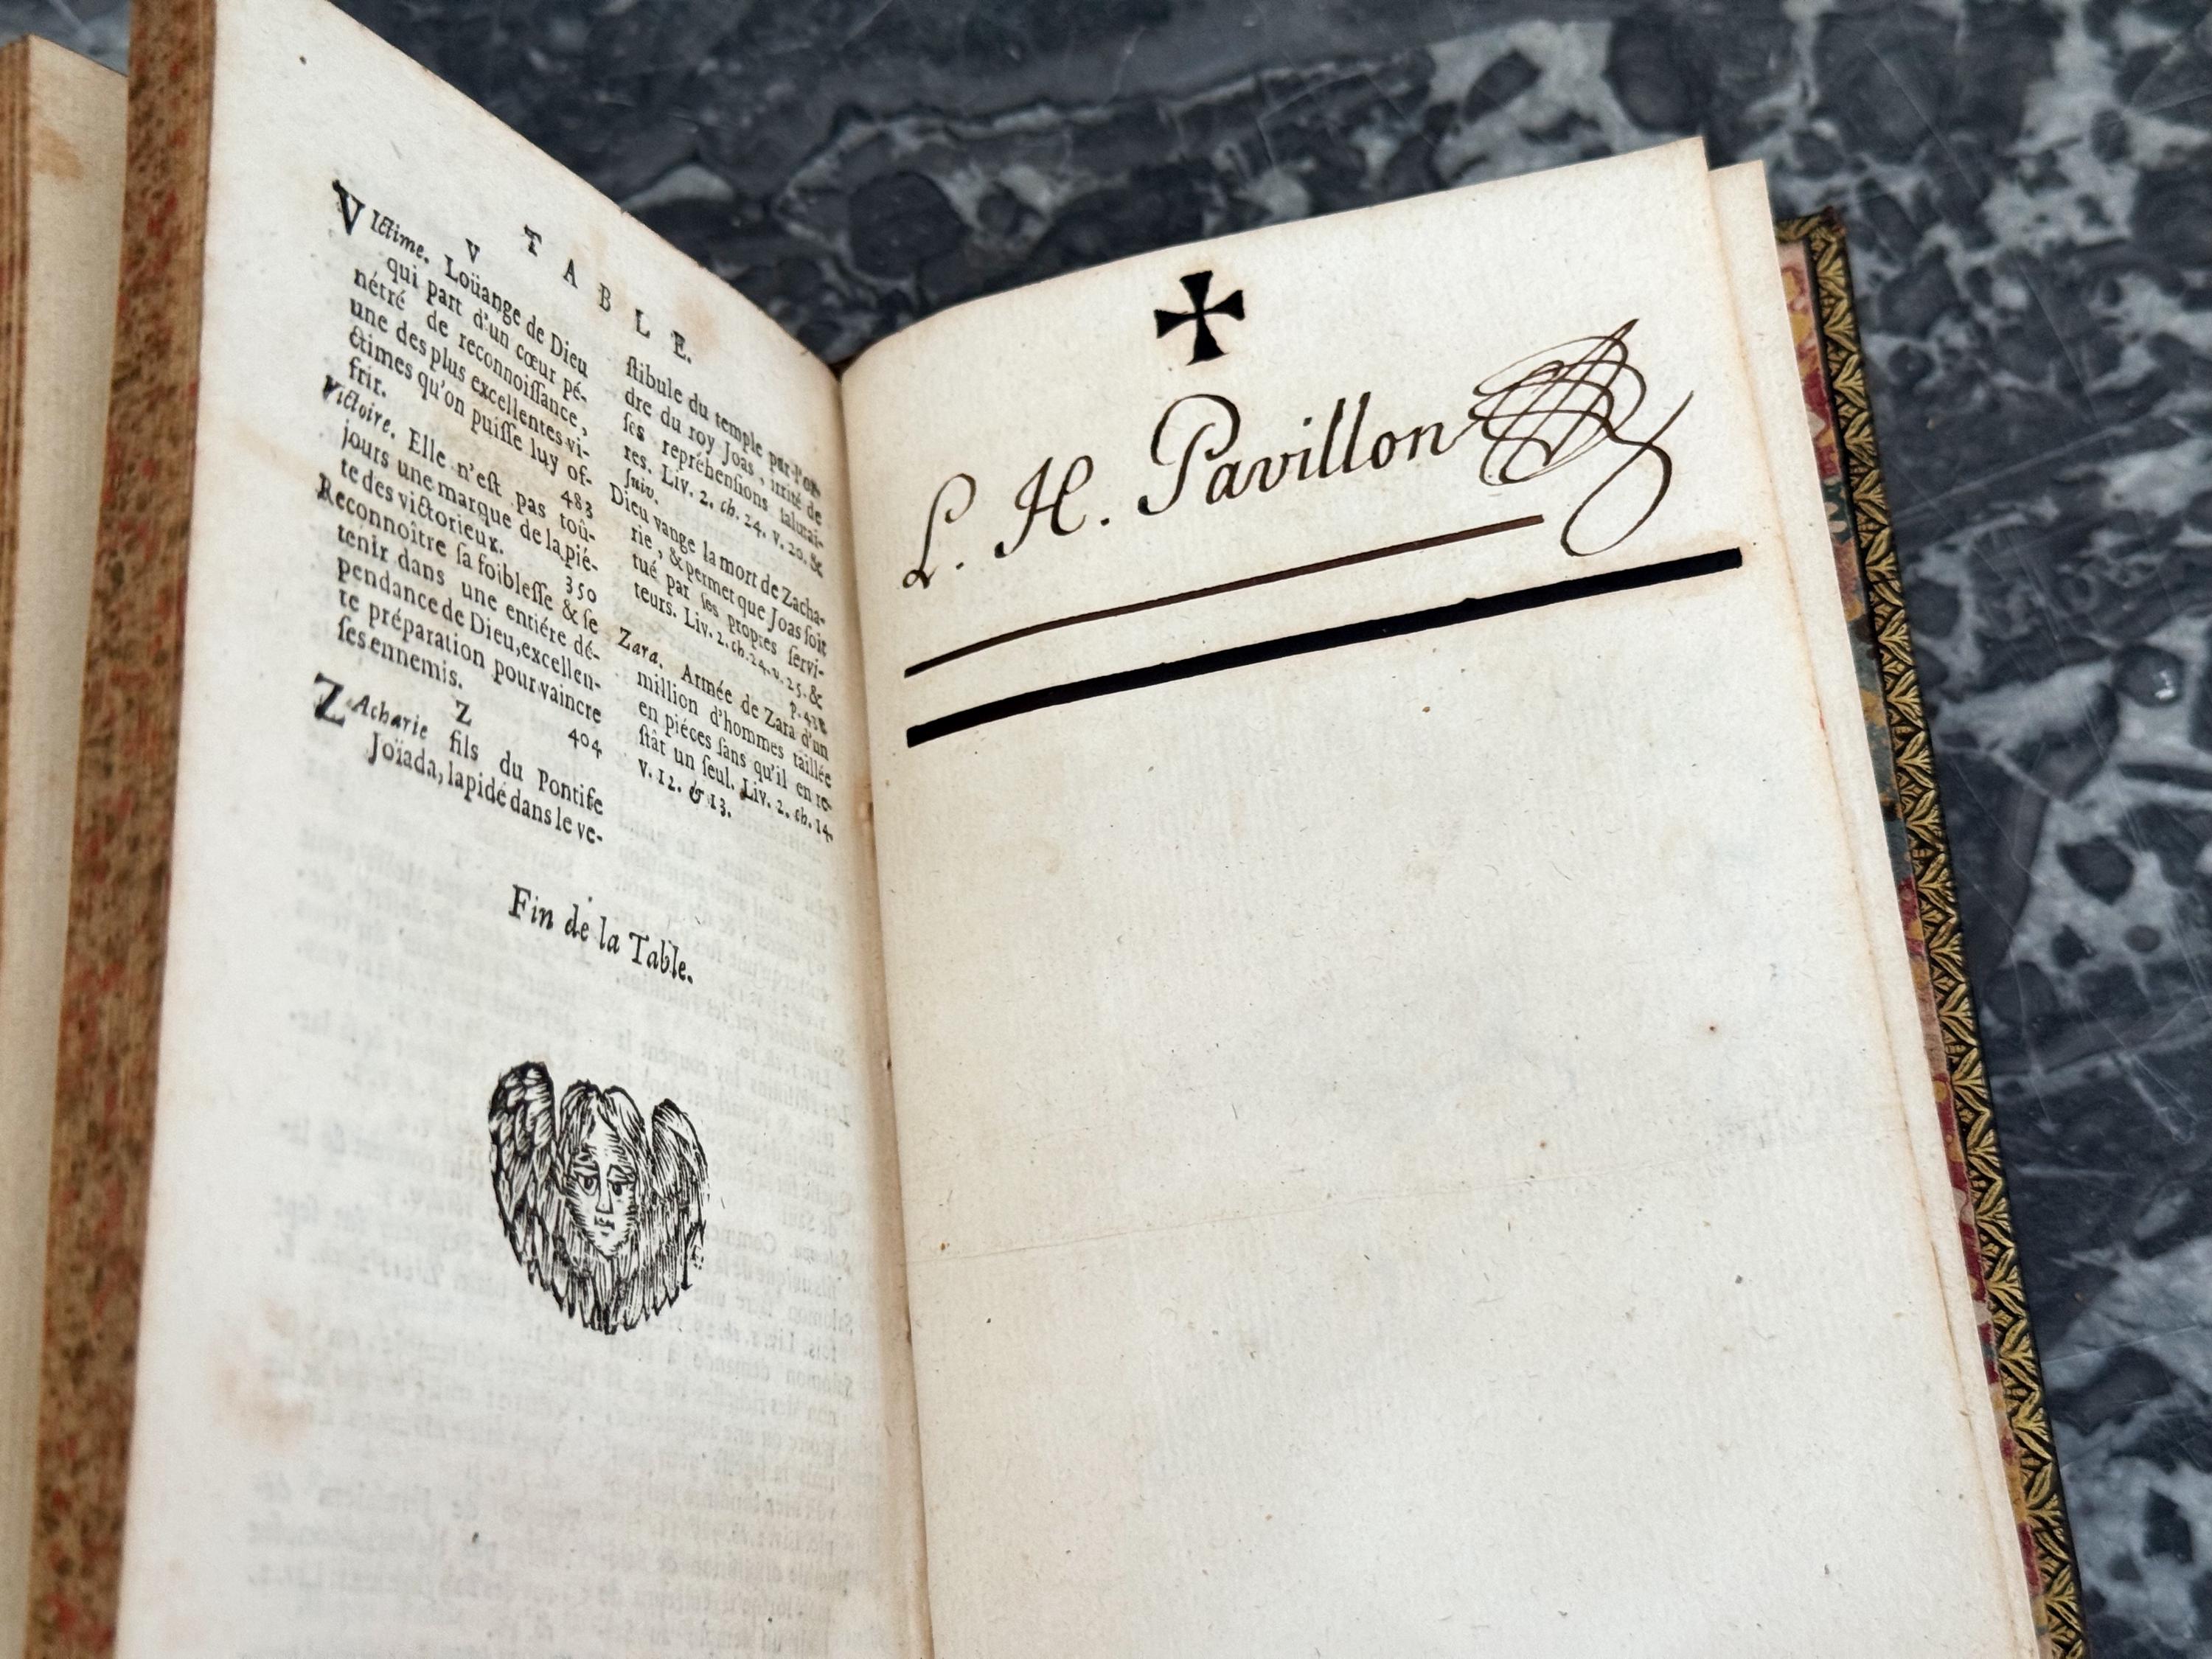 TABLE.
V
VIctime. Loüange de Dieu
qui part d'un cœur pé-
nétré de reconnoiſſance,
une des plus excellentes vi-
ctimes qu'on puiſſe luy of-
frir. 483
Victoire. Elle n'eſt pas toû-
jours une marque de la pié-
te des victorieux. 350
Reconnoître ſa foibleſſe & ſe
tenir dans une entiére dé-
pendance de Dieu, excellen-
te préparation pour vaincre
ſes ennemis. 404
Z
ZAcharie fils du Pontife
Joïada, lapidé dans le ve-
ſtibule du temple par l'or-
dre du roy Joas, irrité de
ſes repréhenſions ſalutai-
res. Liv. 2. ch. 24. v. 20. &
ſuiv.
Dieu vange la mort de Zacha-
rie, & permet que Joas ſoit
tué par ſes propres ſervi-
teurs. Liv. 2. ch. 24. v. 25. &
p. 438
Zara. Armée de Zara d'un
million d'hommes taillée
en piéces ſans qu'il en re-
ſtât un ſeul. Liv. 2. ch. 14.
v. 12. & 13.
Fin de la Table.
L. H. Pavillon